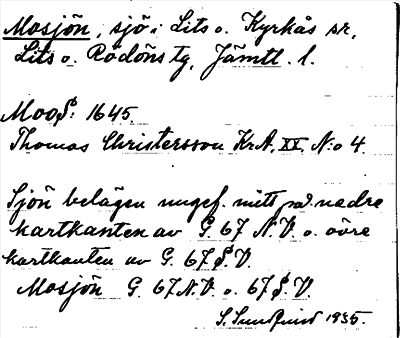 Mosjön, sjö i Lits o. Kyrkås sr,
Lits o. Rödöns tg, Jämtl. l.
Moos: 1645.
Thomas Christersson Kr.A. XX. N:o 4
Sjön belägen ungef. mitt på nedre
kartkanten av G. 67 N.V. o. övre
kartkanten av G. 67 S.V.
Mosjön G. 67 N.V. o. 67 S.V.
S. Sundqvist 1935.